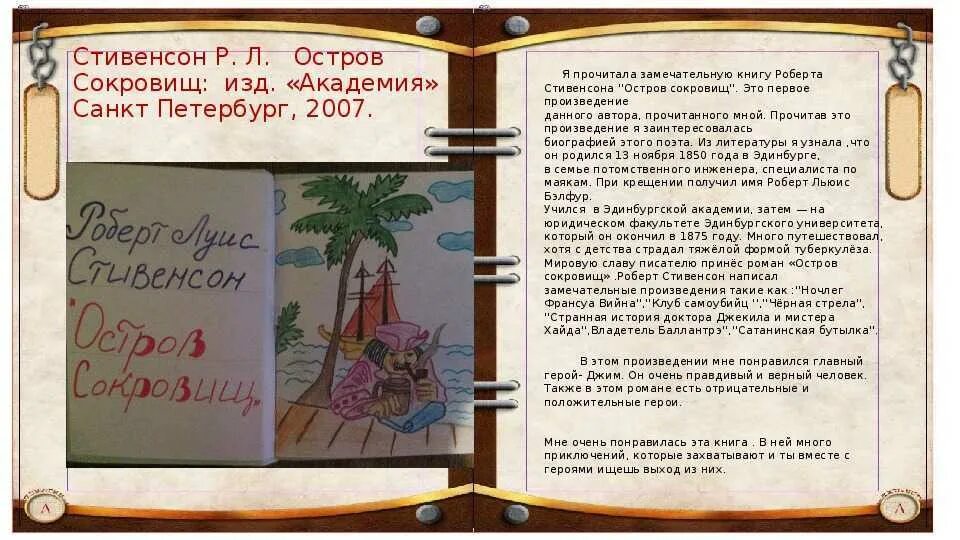 Стивенсон Р. Л. Остров
Сокровищ: изд. «Академия»
Санкт Петербург, 2007.
Роберт Луис
Стивенсон
"Остров
Сокровищ"
Я прочитала замечательную книгу Роберта
Стивенсона "Остров сокровищ". Это первое
произведение
данного автора, прочитанного мной. Прочитав это
произведение я заинтересовалась
биографией этого поэта. Из литературы я узнала ,что
он родился 13 ноября 1850 года в Эдинбурге,
в семье потомственного инженера, специалиста по
маякам. При крещении получил имя Роберт Льюис
Бэлфур.
Учился в Эдинбургской академии, затем — на
юридическом факультете Эдинбургского университета,
который он окончил в 1875 году. Много путешествовал,
хотя с детства страдал тяжёлой формой туберкулёза.
Мировую славу писателю принёс роман «Остров
сокровищ» .Роберт Стивенсон написал
замечательные произведения такие как :"Ночлег
Франсуа Вийна","Клуб самоубийц ","Чёрная стрела",
"Странная история доктора Джекила и мистера
Хайда",Владетель Баллантрэ","Сатанинская бутылка".
В этом произведении мне понравился главный
герой- Джим. Он очень правдивый и верный человек.
Также в этом романе есть отрицательные и
положительные герои.
Мне очень понравилась эта книга . В ней много
приключений, которые захватывают и ты вместе с
героями ищешь выход из них.